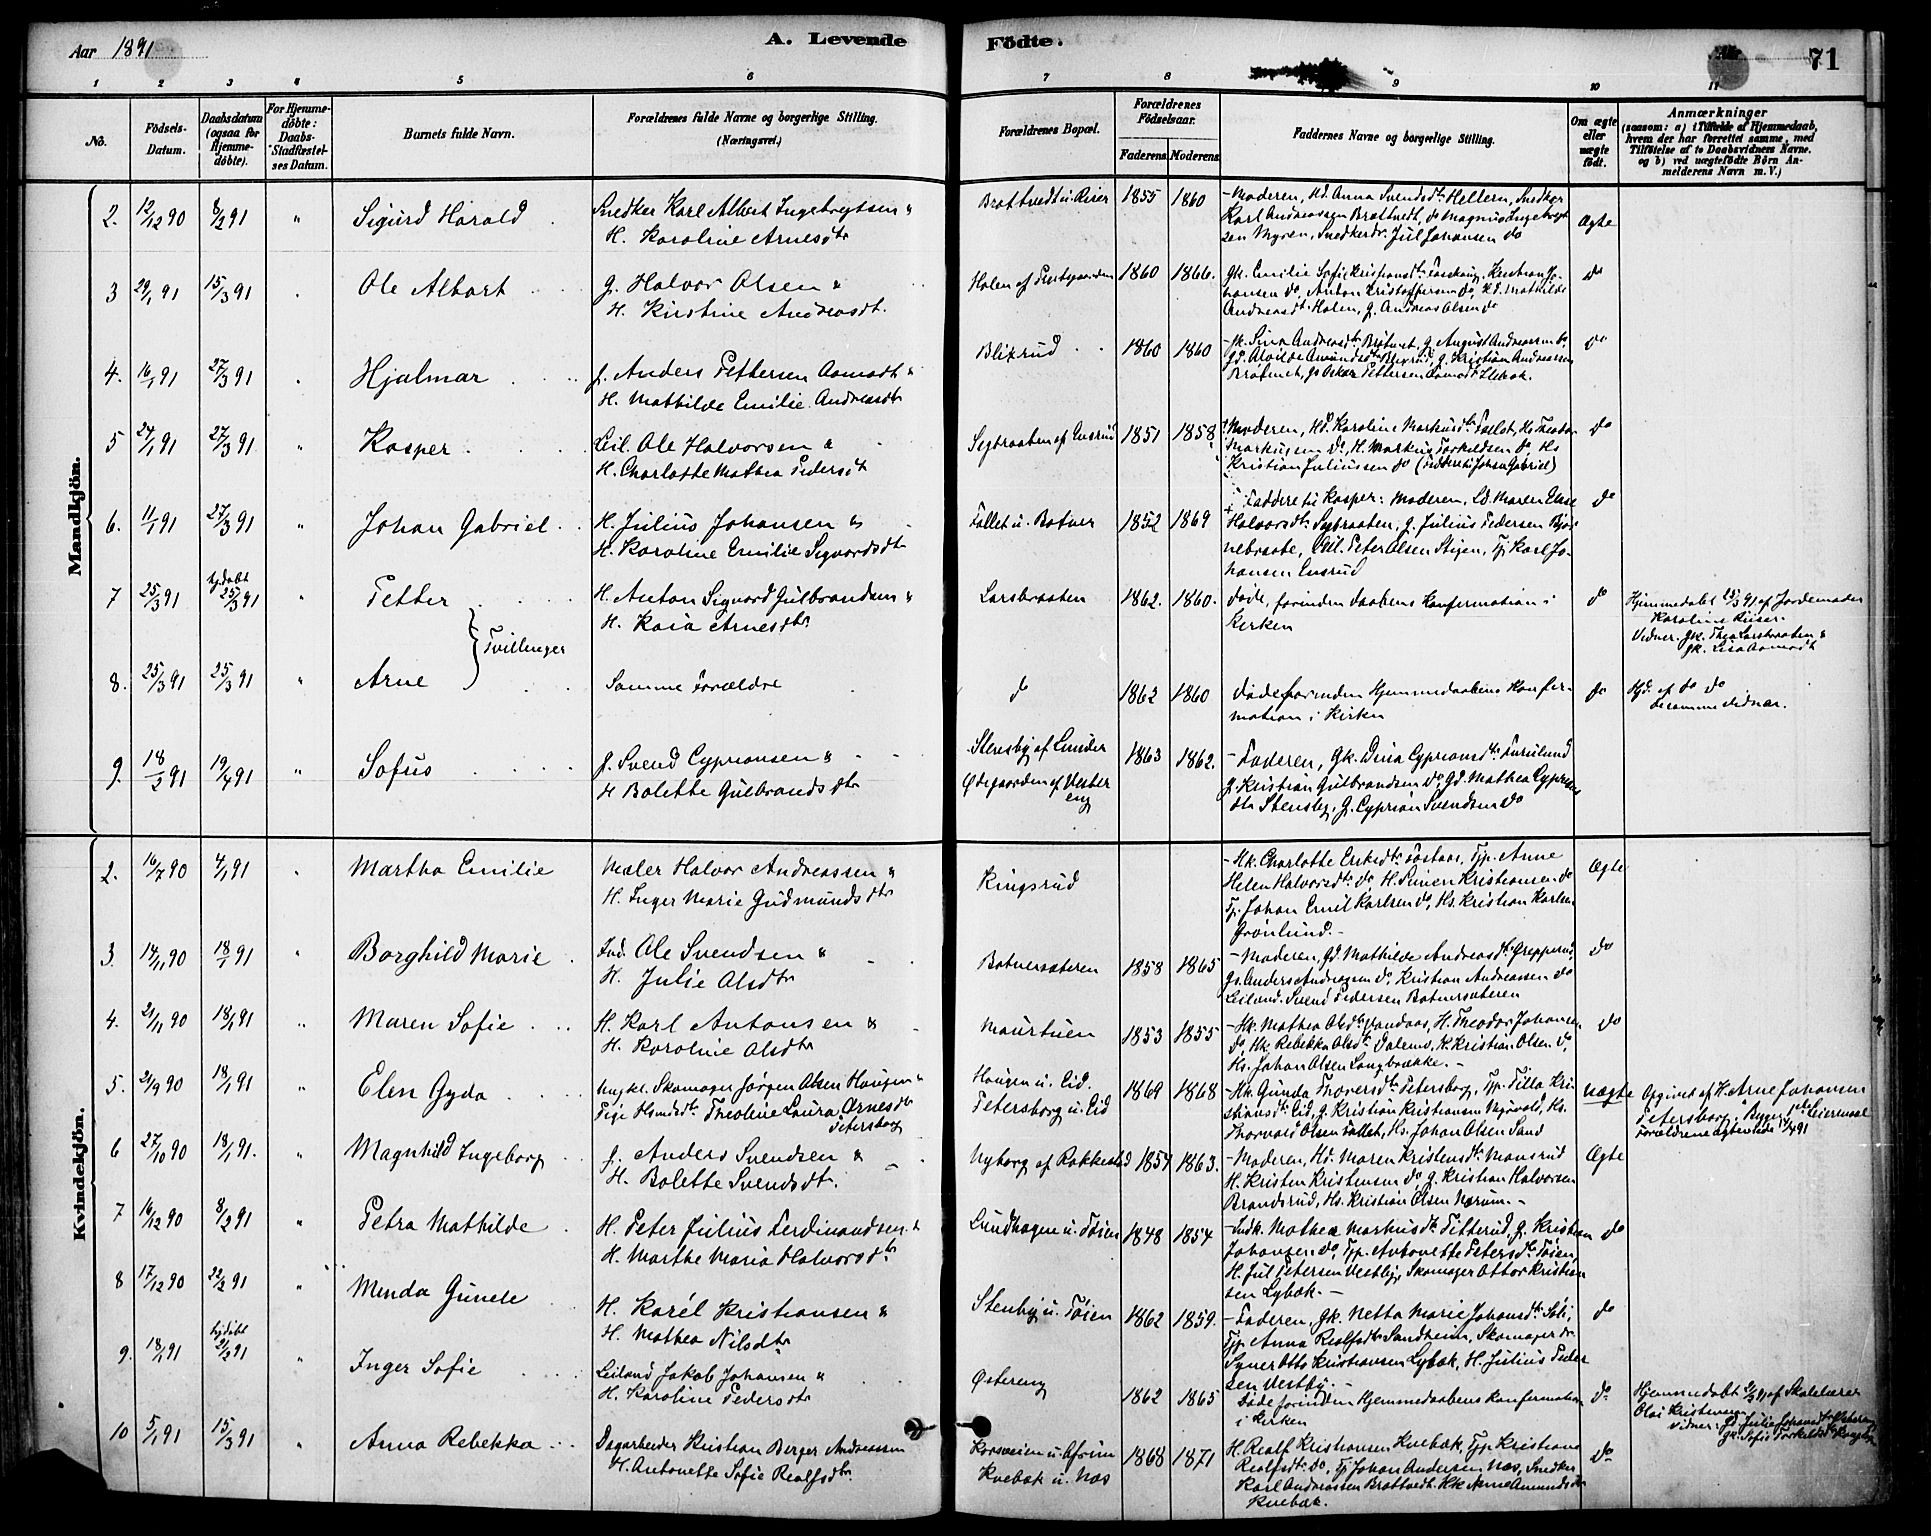 Aar 1891
A. Levende Födte.
71
1 2 3 4 5 6 7 8 9 10 11
No.
Födsels-Datum.
Daabsdatum (ogsaa for Hjemme-döbte).
For Hjemme-döbte: Daabs-Stadfæstel-ses Datum.
Barnets fulde Navn.
Forældrenes fulde Navne og borgerlige Stilling.
(Næringsvei.)
Forældrenes Bopæl.
Forældrenes Födselsaar.
Faderens
Moderens
Faddernes Navne og borgerlige Stilling.
Om ægte eller uægte födt.
Anmærkninger
(saasom: a) i Tilfælde af Hjemmedaab,
hvem der har forrettet samme, med
Tilföielse af to Daabsvidners Navne,
og b) ved uægtefödte Börn An-
melderens Navn m. V.)
Mandkjön.
2. 12/12 90 8/2 91 " Sigurd Harald
Snedker Karl Albert Ingebregtsen &
H. Karoline Arnesdtr
Brattvedt u. Riser 1855 1860
- Moderen, Hd. Anna Svendsdtr Hellern, Snedker
Karl Andreassen Brattvedt, do Magnus Ingebregt
sen Myren, Snedkerdr. Jul Johansen do
Ægte
3 29/1 91 15/3 91 Ole Albert
g. Halvor Olsen &
H. Kirstine Andreasdt.
Holen af Prestgaarden 1860 1866.
Gk. Emilie Sofie Kristiansdtr
hansen do, Anton Kristoffersen do, Hd. Mathilde
Andreasdt. Holen, g. Andreas Olsen do
do
4. 16/1 91 27/3 91 Hjalmar
g. Anders Pettersen Aamodt &
H. Mathilde Emilie Andreasdtr
Blixrud 1860 1860
g. August Andreassen do,
g. Kristian Andreassen
Oskar Pettersen Aamodt
do
5 24/1 91 27/3 91 " Kasper
Leil. Ole Halvorsen &
H. Charlotte Mathea Pedersdt
Segbraaten af Ensrud 1851 1858
Moderen, Hd. Karoline Markusdtr Fallet, Hs Theodor
Markussen do, H. Markus Torkeldsen do, Hs
Kristian Juliussen do (Faddere til Johan Gabriel)
do
6. 11/1 91 27/3 91 " Johan Gabriel
H. Julius Johansen &
H. Karoline Emilie Sigvardsdtr
Fallet u. Botner 1852 1869
Faddere til Kasper: Moderen, Ld. Maren Else
Halvorsdtr Segbraaten, g. Julius Pedersen Bjør
nebraate, Leil. Peter Olsen Stigen, Tj. Karl Jo-
hansen Ensrud
do
7 25/3 91 hj.døbt 25/3 91 " Petter
H. Anton Sigvard Gulbrandsen &
H. Kaia Arnesdtr
Larsbraaten 1862. 1860.
døde, forinden Daabens Konfirmation i
Kirken
do
Hjemmedøbt 25/3 91 af Jordemoder
Karoline Riiser.
Vidner. Gk. Thea Larsbraaten &
gk. Lisa Aamodt
Tvillinger
8. 25/3 91 25/3 91 " Arne
Samme Forældre
do 1862 1860
døde forinden Hjemmedaabens Konfir-
mation i Kirken
do
Hjd. af do do
de samme Vidner.
9. 18/2 91 19/4 91 " Sofus
g. Svend Cypriansen &
H Bolette Gulbrandsdtr
Stensby af Lunder
Ødegaarden af Vester
eng
1863 1862.
- Faderen, Gk. Dina Cypriansdtr Furulund
g. Kristian Gulbrandsen do, Gd. Mathea Cyprians
dtr Stensby, g. Cyprian Svendsen do
Kvindekjön.
2. 16/7 90 4/1 91 Martha Emilie
Maler Halvor Andreassen &
H. Inger Marie Gudmundsdtr
Ringsrud
- Hk. Charlotte Eriksdtr Tostaas, Tp. Anne
Helen Halvorsdtr do, H. Simen Kristiansen do
Tj. Johan Emil Karlsen do, Hs. Kristian Karlsen
Grønlund.-
Ægte
3. 14/11 90 18/1 91 " Borghild Marie
Ind. Ole Svendsen &
H. Julie Olsdtr
Botnersæteren 1858 1865
- Moderen, Gd. Mathilde Andreasdtr Grepperud,
Gs. Anders Andreassen do, Kristian Andreassen do
Leiland. Svend Pedersen Botnersæteren
do
4. 21/11 90 18/1 91 " Maren Sofie
H. Karl Antonsen &
H. Karoline Olsdtr
Maurtuen 1853 1855
- Hk. Mathea Olsdtr Vandaas, H. Theodor Johansen
do, Hk. Rebekka Olsdtr Dalemo, H. Kristian Olsen do,
Hs. Johan Olsen Langbrække.-
do
5. 21/9 90 18/1 91 " Elen Gyda
Ungkl. Skomager Jørgen Olsen Haugen &
Pige Hsmdsdtr Theoline Laura Arnesdtr
Petersborg
Haugen u. Eid.
Petersborg u. Eid
1869 1868
- Hk. Gunda Thoversdtr Petersborg, Tp. Tilla Kri-
stiansdtr Eid, g. Kristian Kristiansen Myrvold, Hs.
Thorvald Olsen Fallet, Hs. Johan Olsen Sand
uægte
Opgivet af H. Arne Johansen
Petersborg, Begges 1ste Leiermaal
Forældrene ægteviede
6 27/10 90 18/1 91. " Magnhild Ingeborg
g. Anders Svendsen &
H. Bolette Svendsdtr.
Nyborg af Rakkestad 1854 1863.
- Moderen, Hd. Maren Kristensdtr Monsrud
H. Kristen Kristensen do, g. Kristian Halvorsen
Brandsrud, Hs. Kristian Olsen Nærum.-
Ægte
7 16/12 90 8/2 91 " Petra Mathilde
H. Peter Julius Ferdinandsen &
H. Marthe Maria Halvorsdtr
Lundhagen u. Tøien 1848 1854
- Indk. Mathea Markusdtr Fitterud, g. Kristian
Johansen do, Tp. Antonette Petersdtr Tøien,
H. Jul Petersen Vestby, Skomager Ottor Kristian
sen Lybæk.-
do
8 17/12 90 22/2 91 " Minda Gunele
H. Karél Kristiansen &
H. Mathea Nilsdtr
Stenby u. Tøien 1862 1859.
- Faderen, Gk. Netta Marie Johansdtr Soli,
Tp. Anna Realfsdtr Sandheim, Skomagerdr.
Syver Otto Kristiansen Lybæk, H. Julius Peder
sen Vestby.-
do
9. 18/1 91 hj.døbt 2/2 91 " Inger Sofie
Leiland Jakob Johansen &
H. Karoline Pedersdtr
Østereng 1862 1865
Døde forinden Hjemmedaabens Konfirmation
i Kirken
do
Hjemmedøbt 2/2 91 af Skolelærer
Olai Kristensen
Vidner: Gd. Julie Johansdtr Østereng
gk. Sofie Torkeldsdtr
10 5/1 91 15/3 91 " Anna Rebekka
Dagarbeider Kristian Berger Andreassen
H. Antonette Sofie Realfsdtr.
Korsveien u. Afrim
Kvebæk u. Næs
1868 1871
H. Realf Kristiansen Kvebæk, Tp. Kristiane
Realfsdtr do, Tj. Johan Andersen Næs, Snedker
Karl Andreassen Brattvedt. Hk Anne Amundsdtr
Kvebæk.
do